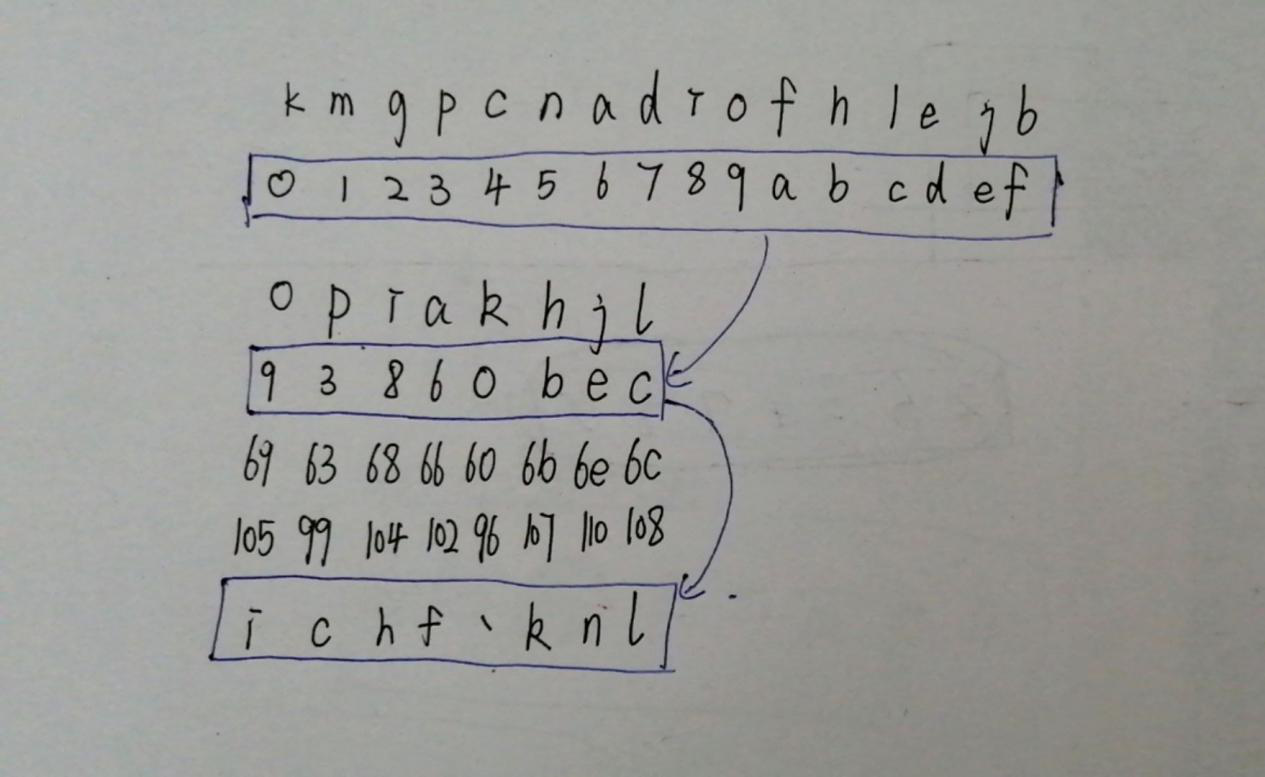 k m g p c n a d i o f h l e j b
0 1 2 3 4 5 6 7 8 9 a b c d e f
o p i a k h j l
9 3 8 6 0 b e c
69 63 68 66 60 6b 6e 6c
105 99 104 102 96 107 110 108
i c h f ` k n l